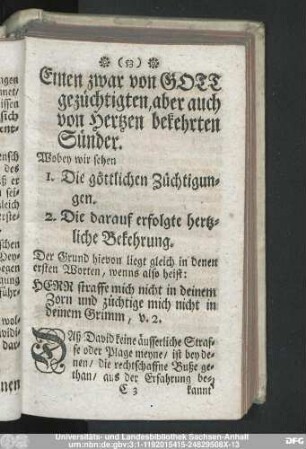 (53)
Einen zwar von GOTT
gezüchtigten, aber auch
von Hertzen bekehrten
Sünder.
Wobey wir sehen
1. Die göttlichen Züchtigun-
gen.
2. Die darauf erfolgte hertz-
liche Bekehrung.
Der Grund hievon liegt gleich in denen
ersten Worten, wenns also heist:
HERR straffe mich nicht in deinem
Zorn und züchtige mich nicht in
deinem Grimm, v. 2.
Daß David keine äusserliche Straf-
fe oder Plage meyne/ ist bey de-
nen/ die rechtschaffne Buße ge-
than/ aus der Erfahrung be-
C 3 kannt
Universitäts- und Landesbibliothek Sachsen-Anhalt
urn:nbn:de:gbv:3:1-1192015415-24829508X-13